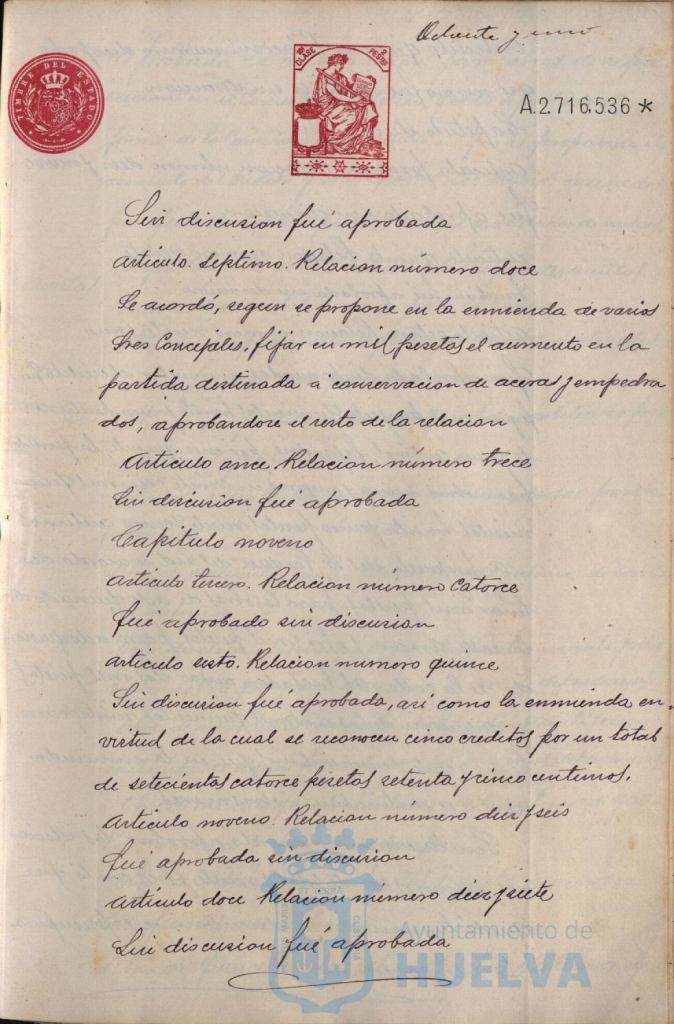 Ochenta y uno
TIMBRE DEL ESTADO
10ª CLASE 2 PESETAS
A.2.716.536 *
Sin discusion fué aprobada
Articulo. Septimo. Relacion número doce
Se acordó, segun se propone en la enmienda de varios
Sres Concejales, fijar en mil pesetas el aumento en la
partida destinada a conservacion de aceras y empedra
dos, aprobandose el resto de la relacion
Articulo once Relacion número trece
Sin discusion fué aprobada
Capitulo noveno
Articulo tercero. Relacion número Catorce
fué aprobado sin discusion
Articulo sesto. Relacion numero quince
Sin discusion fué aprobada, asi como la enmienda en
virtud de la cual se reconocen cinco creditos por un total
de setecientas catorce pesetas setenta y cinco centimos.
Articulo noveno. Relacion número diez y seis
fué aprobada sin discusion
Articulo doce Relacion número diez y siete
Sin discusion fué aprobada
Ayuntamiento de
HUELVA